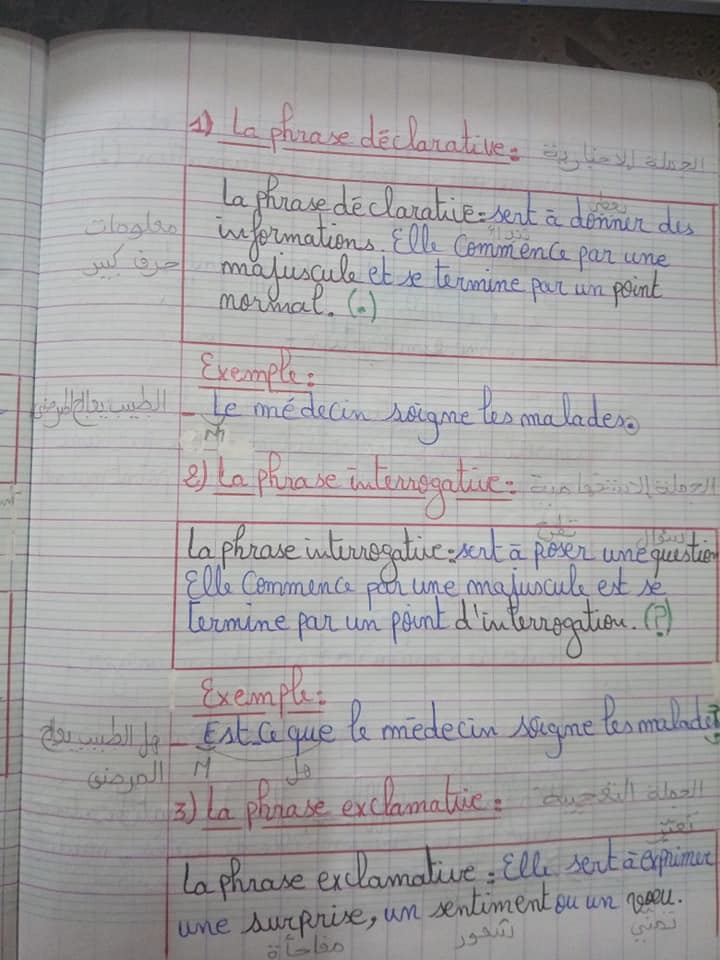 1) La phrase déclarative : الجملة الإخبارية
تعطي
La phrase déclarative : sert à donner des
معلومات
تبدأ
informations. Elle Commence par une
حرف كبير
majuscule et se termine par un point
normal. (.)
Exemple :
الطبيب يعالج المرضى
- Le médecin soigne les malades.
M
2) La phrase interrogative : الجملة الاستفهامية
تطرح سؤال
La phrase interrogative : sert à poser une question
Elle Commence par une majuscule est se
termine par un point d'interrogation. (?)
Exemple :
هل الطبيب يعالج
- Est-Ce que le médecin soigne les malades?
المرضى
M هل
3) La phrase exclamative : الجملة التعجبية
La phrase exclamative : Elle sert à exprimer
une surprise, un sentiment ou un voeu.
مفاجأة شعور تمني